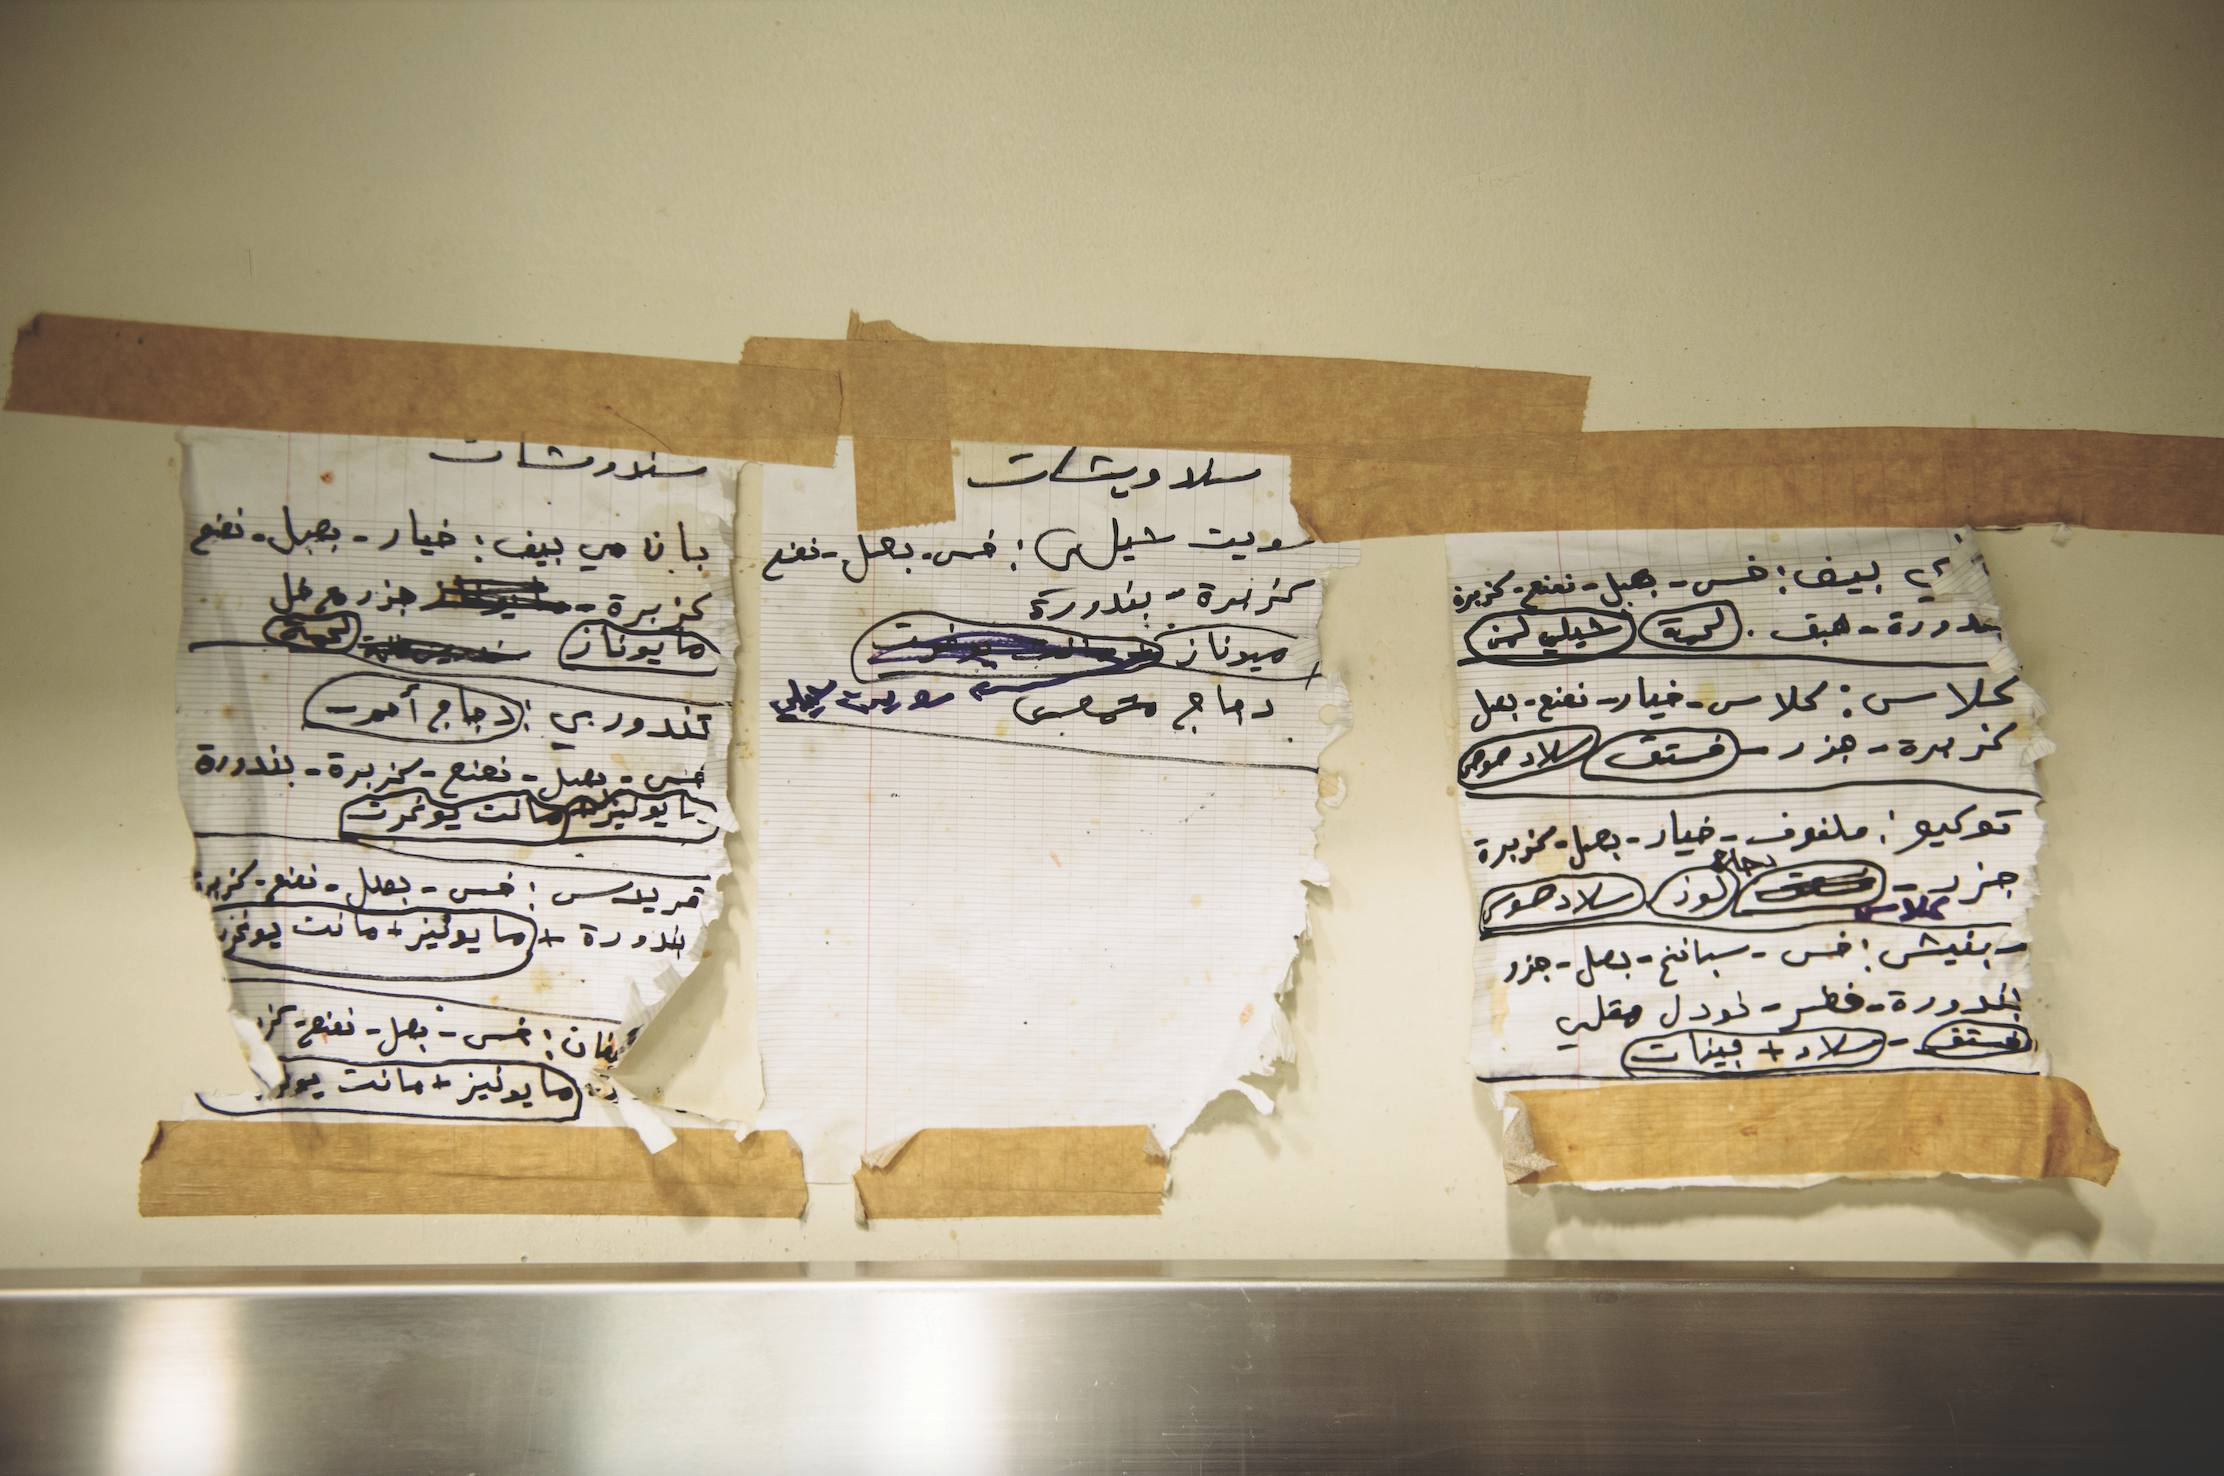 سندوشات
بان مي بيف: خيار - بصل - نعنع
كزبرة - جزر مع خل
مايوناز لحمة
تندوري: دجاج أحمر
خس - بصل - نعنع - كزبرة - بندورة
مايونيز + مانت يوغرت
قريدس: خس - بصل - نعنع - كزبرة
بندورة + مايونيز + مانت يوغرت
خس - بصل - نعنع - كز
مايونيز + مانت يوغر
سندويشات
سويت شيلي: خس - بصل - نعنع
كزبرة - بندورة
ميوناز
دجاج سويت شيلي
ي بيف: خس - بصل - نعنع - كزبرة
بندورة - حبق. لحمة شيلي
كلاس: كلاس - خيار - نعنع - بصل
كزبرة - جزر - فستق سلاد صوص
توكيو: ملفوف - خيار - بصل - كزبرة
دجاج
جزر - لوز سلاد صوص
كلاس
خس - سبانخ - بصل - جزر
بندورة - فطر - نودل مقلي
فستق - سلاد + بينات